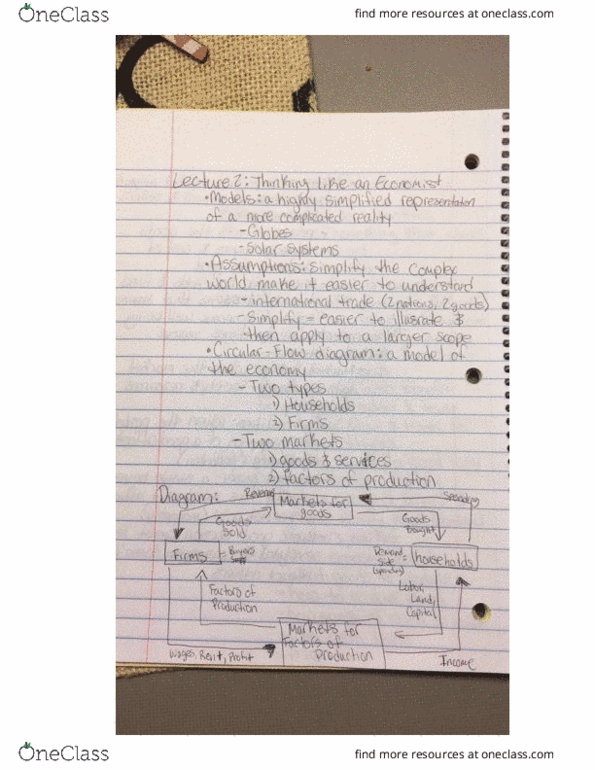 OneClass
find more resources at oneclass.com
Lecture 2: Thinking Like an Economist
•Models: a highly simplified representation
of a more complicated reality
-Globes
-Solar systems
•Assumptions: simplify the complex
world, make it easier to understand
-international trade (2 nations, 2 goods)
-Simplify = easier to illusrate &
then apply to a larger scope
•Circular-Flow diagram: a model of
the economy
-Two types
1) Households
2) Firms
-Two markets
1) goods & services
2) factors of production
Diagram:
Revenue
Markets for
goods
Spending
Goods
Sold
Goods
Bought
Firms
= Buyers
Demand
Side
(spending)
= households
Factors of
Production
Labor,
Land,
Capital
Markets for
Factors of
Production
Wages, Rent, Profit
Income
OneClass
find more resources at oneclass.com